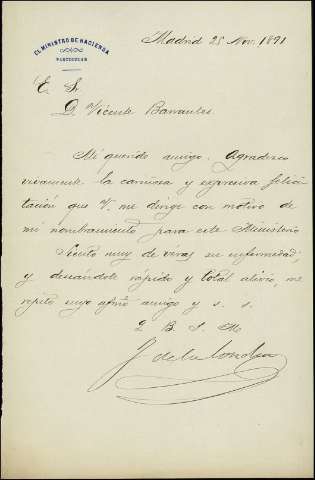 EL MINISTRO DE HACIENDA
PARTICULAR
Madrid 25 Nov. 1891
E. S.
D. Vicente Barrantes.
Mi querido amigo. Agradezco
vivamente la cariñosa y expresiva felici
tación que V. me dirige con motivo de
mi nombramiento para este Ministerio
Siento muy de veras su enfermedad,
y deseándole rápido y total alivio, me
repito suyo afmo amigo y s. s.
Q B S M
J de la Concha